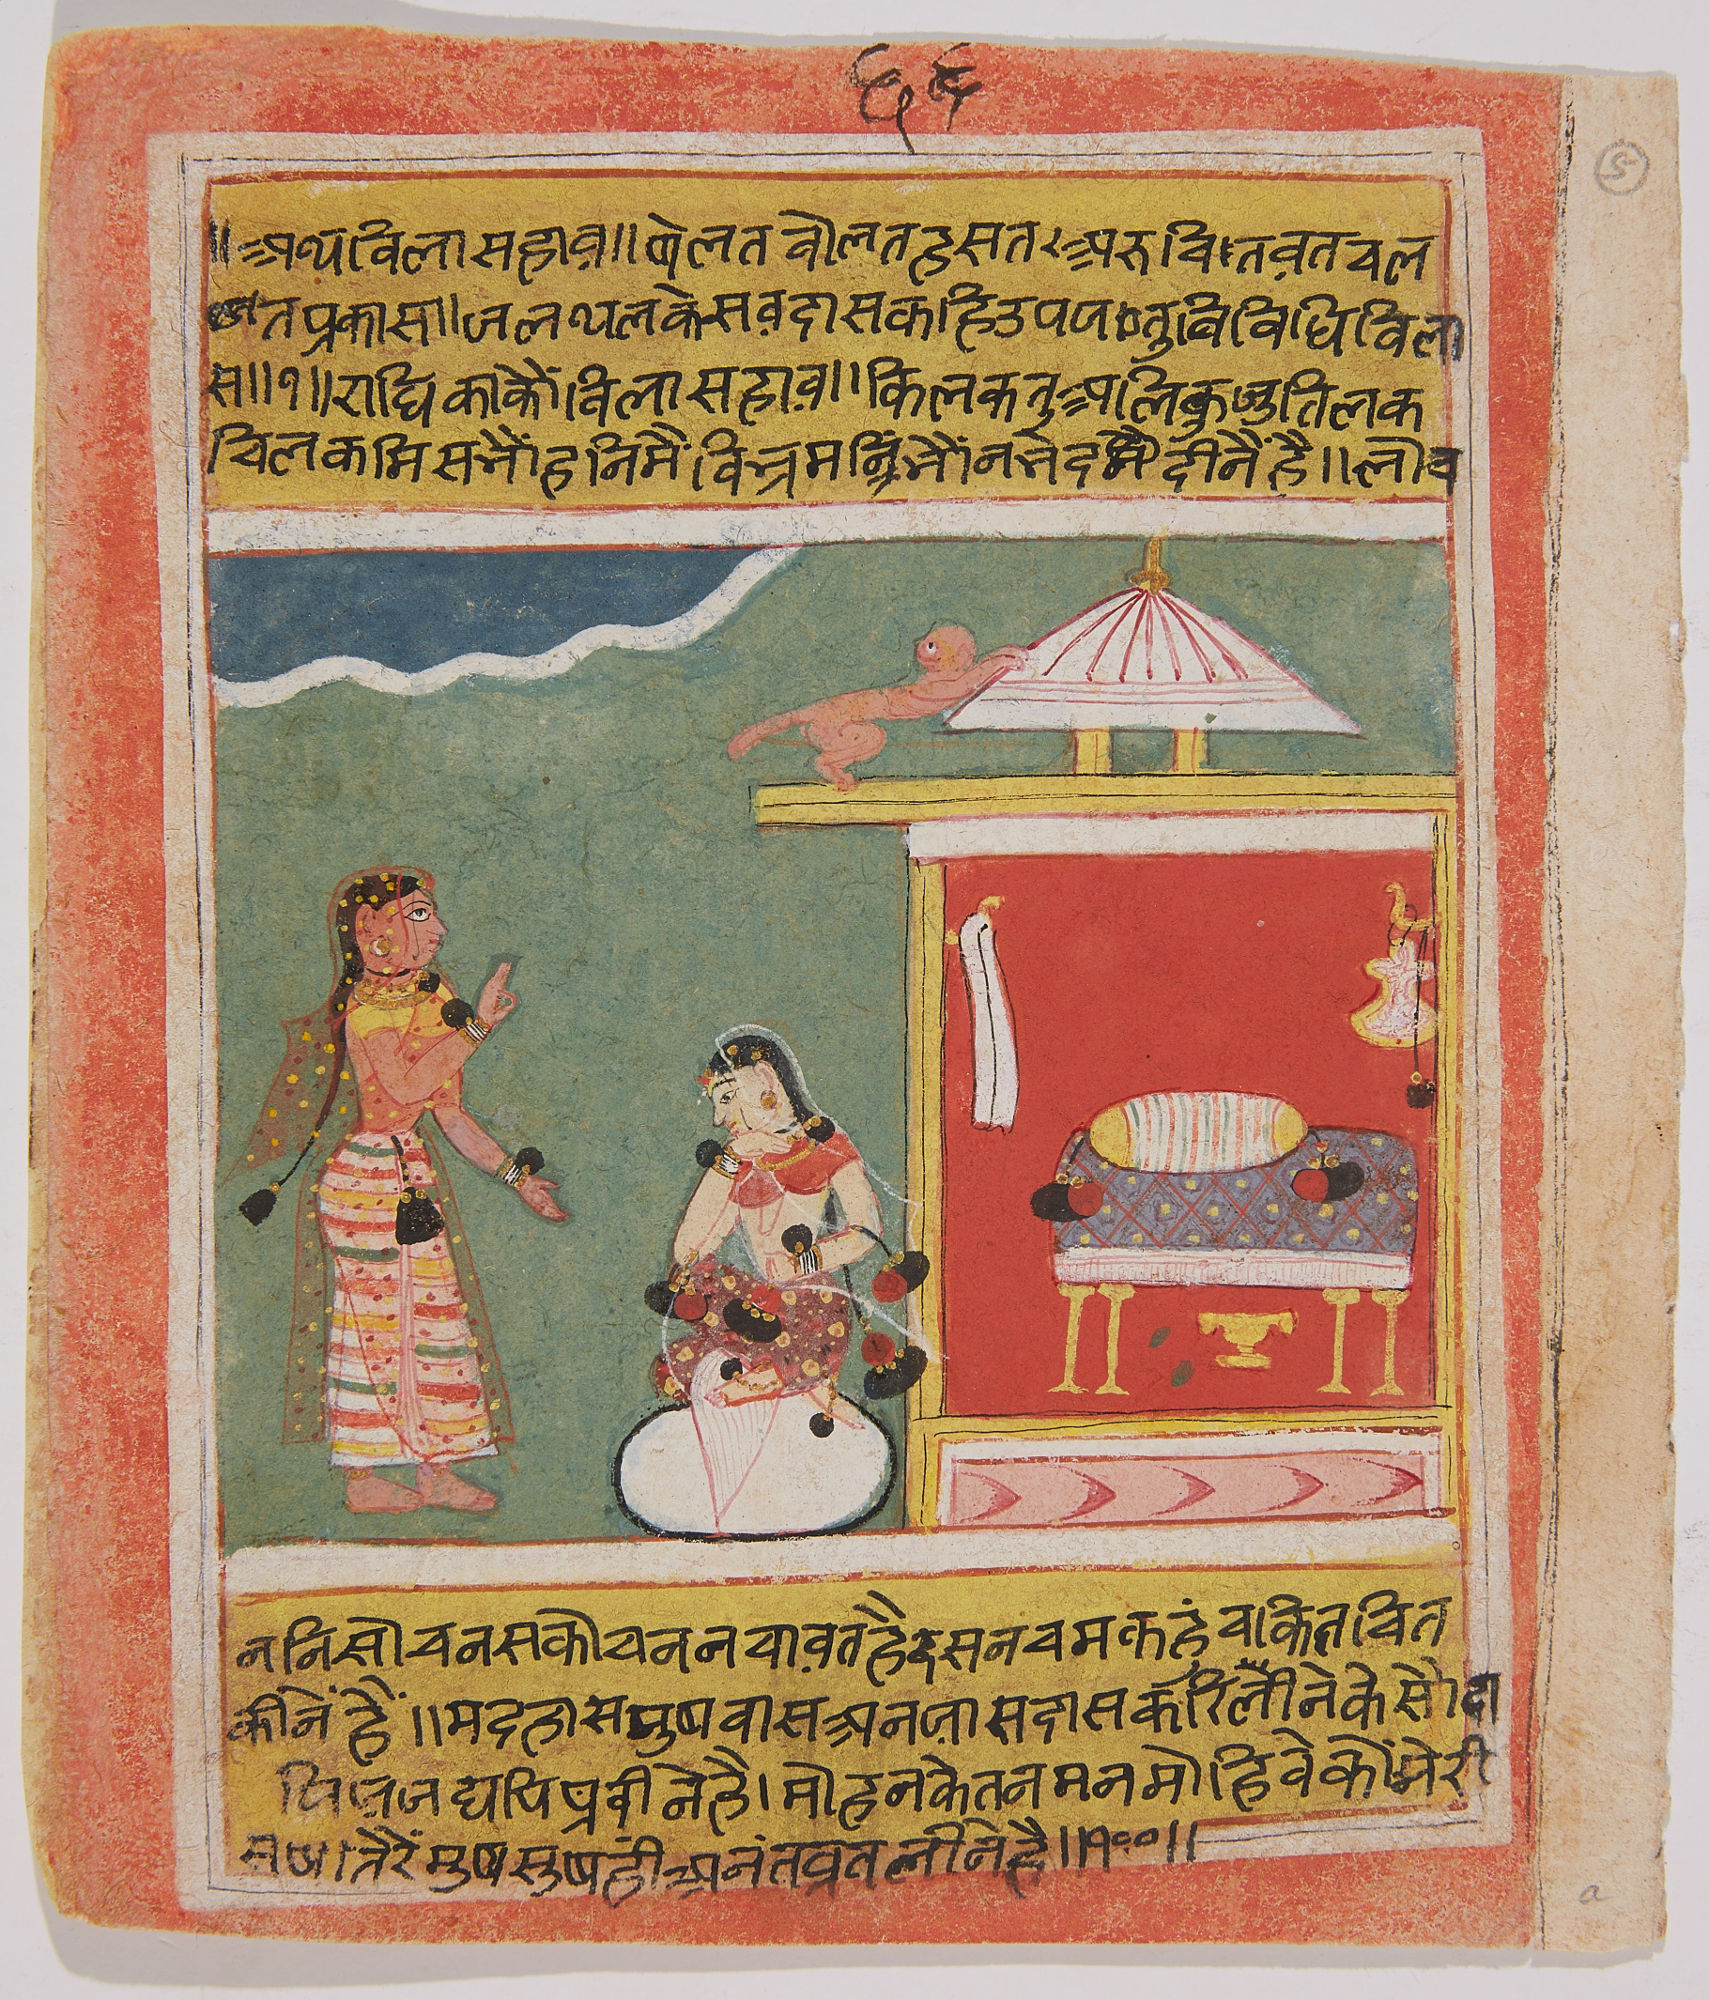 ६९
॥अथविलासहाव॥षेलत बोलतहसतअरुचितवतचल
तप्रकास॥जलथलकेसवदासकहिउपजतुविविधिविला
स॥१॥राधिकाकौविलासहाव॥किलकतुअलिकजुतिलक
चिलकमिसभौंहनिमैंविभ्रम भौंनभेदमैदीनैंहै॥लोच
ननिसोचनसकोचननचावतहैदसनचमकहींचकितचित
कीनेंहैं॥मदहासमुषवासअनआसदासकरिलीनेकेसौदा
जद्यपिप्रवीनेहै।मोहनकेतनमनमोहिवेकौंमेरी
सषीतेरेंमुषसुषहीअनंतव्रतलीनेहै॥१००॥
5
a